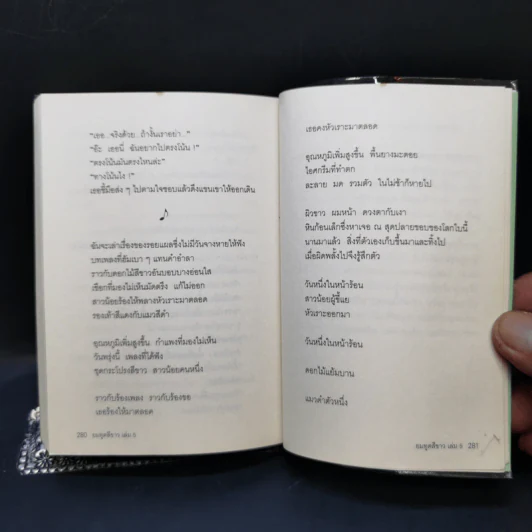 “เธอ..จริงด้วย..ถ้างั้นเราอย่า..”
“อ๊ะ เธอนี่ ฉันอยากไปตรงโน้น !”
“ตรงโน้นมันตรงไหนล่ะ”
“ทางโน้นไง !”
เธอชี้มือส่ง ๆ ไปตามใจชอบแล้วดึงแขนเขาให้ออกเดิน
ฉันจะเล่าเรื่องของรอยแผลซึ่งไม่มีวันจางหายให้ฟัง
บทเพลงที่ฮัมเบา ๆ แทนคำอำลา
ราวกับดอกไม้สีขาวอันบอบบางอ่อนใส
เชือกที่มองไม่เห็นมัดตรึง แก้ไม่ออก
สาวน้อยร้องไห้พลางหัวเราะมาตลอด
รองเท้าสีแดงกับแมวสีดำ
อุณหภูมิเพิ่มสูงขึ้น กำแพงที่มองไม่เห็น
วันพรุ่งนี้ เพลงที่ได้ฟัง
ชุดกระโปรงสีขาว สาวน้อยคนหนึ่ง
ราวกับร้องเพลง ราวกับร้องขอ
เธอร้องไห้มาตลอด
280 ยมทูตสีขาว เล่ม 5
เธอคงหัวเราะมาตลอด
อุณหภูมิเพิ่มสูงขึ้น พื้นยางมะตอย
ไอศกรีมที่ทำตก
ละลาย มด รวมตัว ในไม่ช้าก็หายไป
ผิวขาว ผมหน้า ดวงตากับเงา
หินก้อนเล็กซึ่งหาเจอ ณ สุดปลายขอบของโลกใบนี้
นานมาแล้ว สิ่งที่ตัวเองเก็บขึ้นมาและทิ้งไป
เมื่อผิดพลั้งไปจึงรู้สึกตัว
วันหนึ่งในหน้าร้อน
สาวน้อยผู้ขี้แย
หัวเราะออกมา
วันหนึ่งในหน้าร้อน
ดอกไม้แย้มบาน
แมวดำตัวหนึ่ง
ยมทูตสีขาว เล่ม 5 281